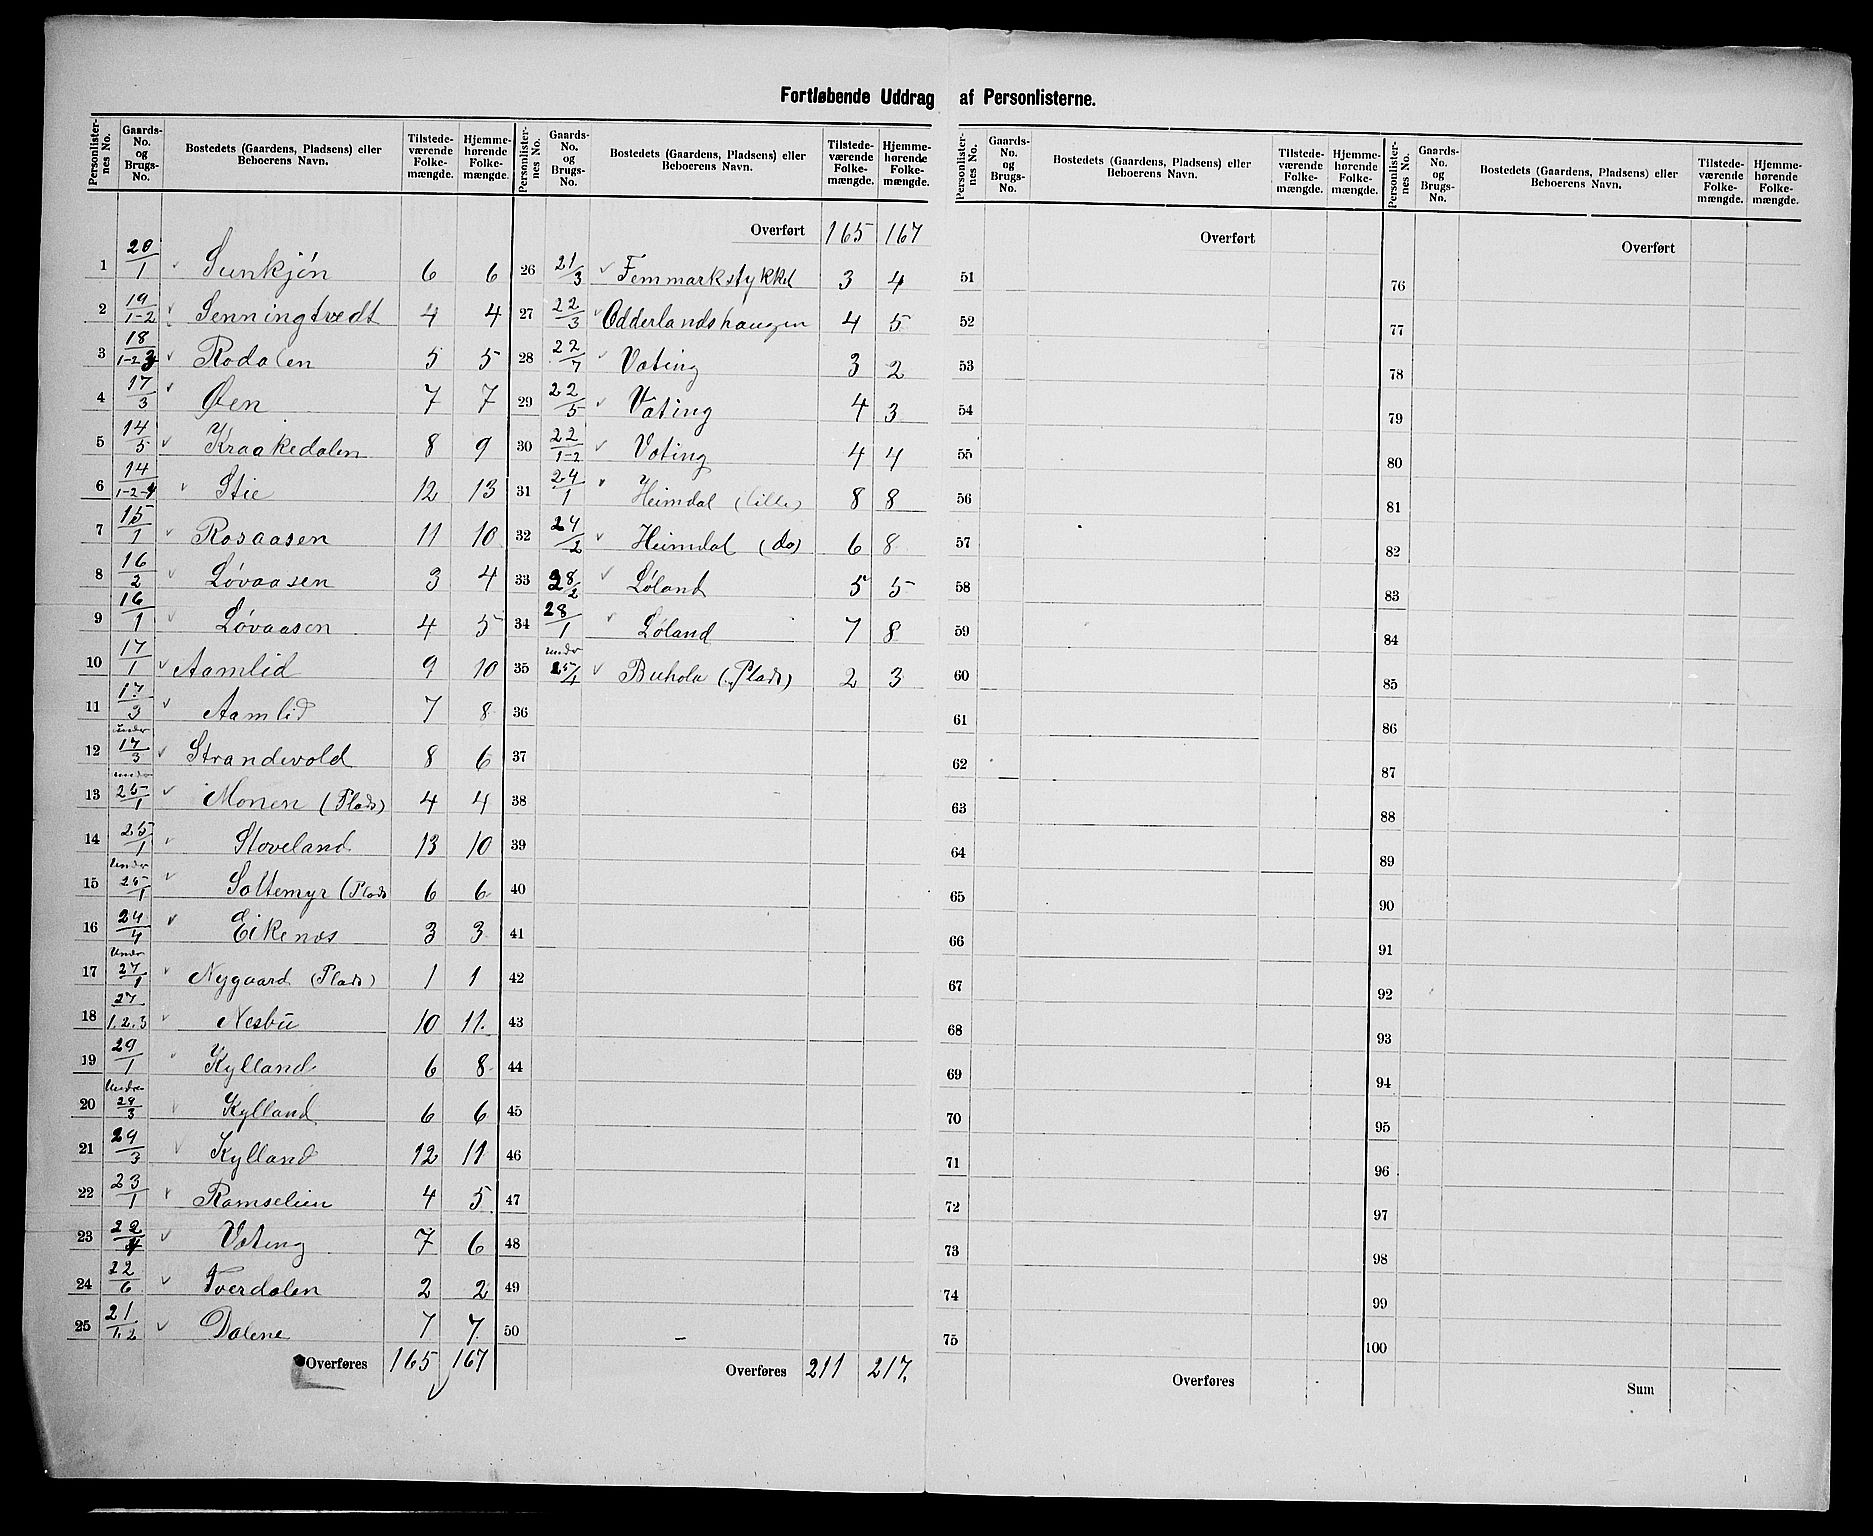 Fortløbende Uddrag af Personlisterne.
Personlister-nes No. | Gaards-No. og Brugs-No. | Bostedets (Gaardens, Pladsens) eller Beboerens Navn. | Tilstede-værende Folke-mængde. | Hjemme-hørende Folke-mængde.
1 20/1 Sunkjøn 6 6
2 19/1-2 Senningtvedt 4 4
3 18/1-2-3 Rodalen 5 5
4 17/3 Øen 7 7
5 14/5 Kraakedalen 8 9
6 14/1-2-4 Stie 12 13
7 15/1 Rosaasen 11 10
8 16/2 Løvaasen 3 4
9 16/1 Løvaasen 4 5
10 17/1 Aamlid 9 10
11 17/3 Aamlid 7 8
12 under 17/3 Strandevold 8 6
13 under 25/1 Monen (Plads) 4 4
14 25/1 Stoveland 13 10
15 Under 25/1 Soltemyr (Plads 6 6
16 24/4 Eikenæs 3 3
17 Under 27/1 Nygaard (Plads) 1 1
18 27/1.2.3 Nesbu 10 11.
19 29/1 Kylland 6 8
20 Under 29/3 Kylland 6 6
21 29/3 Kylland 12 11
22 23/1 Ramselien 4 5
23 22/4 Vating 7 6
24 22/6 Tverdalen 2 2
25 21/1.2 Dalene 7 7
Overføres 165 167
Personlister-nes No. | Gaards-No. og Brugs-No. | Bostedets (Gaardens, Pladsens) eller Beboerens Navn. | Tilstede-værende Folke-mængde. | Hjemme-hørende Folke-mængde.
Overført 165 167
26 21/3 Femmarkstykket 3 4
27 22/3 Odderlandshaugen 4 5
28 22/7 Vating 3 2
29 22/5 Vating 4 3
30 22/1-2 Vating 4 4
31 24/1 Heimdal (lille) 8 8
32 24/2 Heimdal (do) 6 8
33 28/2 Løland 5 5
34 28/1 Løland 7 8
35 under 25/4 (Plads) 2 3
36
37
38
39
40
41
42
43
44
45
46
47
48
49
50
Overføres 211 217.
Personlister-nes No. | Gaards-No. og Brugs-No. | Bostedets (Gaardens, Pladsens) eller Beboerens Navn. | Tilstede-værende Folke-mængde. | Hjemme-hørende Folke-mængde.
Overført
51
52
53
54
55
56
57
58
59
60
61
62
63
64
65
66
67
68
69
70
71
72
73
74
75
Overføres
Personlister-nes No. | Gaards-No. og Brugs-No. | Bostedets (Gaardens, Pladsens) eller Beboerens Navn. | Tilstede-værende Folke-mængde. | Hjemme-hørende Folke-mængde.
Overført
76
77
78
79
80
81
82
83
84
85
86
87
88
89
90
91
92
93
94
95
96
97
98
99
100
Sum